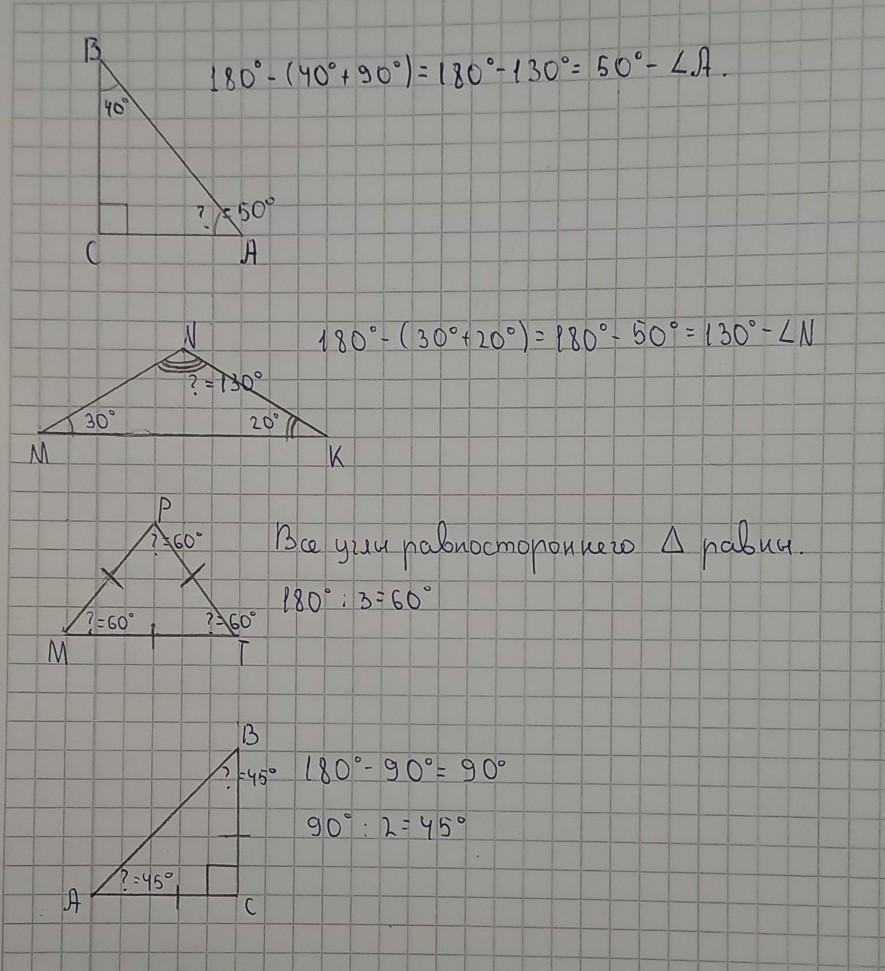 B
180° - (40° + 90°) = 180° - 130° = 50° - ∠A.
40°
? = 50°
C
A
N
180° - (30° + 20°) = 180° - 50° = 130° - ∠N
? = 130°
30°
20°
M
K
P
? = 60°
Все углы равностороннего Δ равны.
180° : 3 = 60°
? = 60°
? = 60°
M
T
B
? = 45°
180° - 90° = 90°
90° : 2 = 45°
? = 45°
A
C